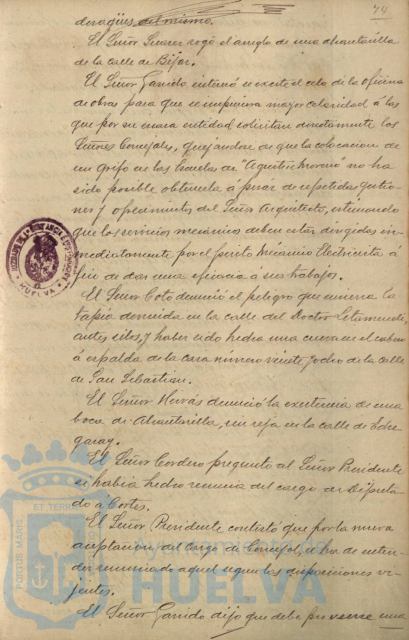 74
desagües del mismo.
El Señor Suarez rogó el arreglo de una alcantarilla
de la calle de Béjar.
El Señor Garrido interesó se excite el celo de la oficina
de obras para que se imprimiera mayor celeridad á las
que por su escasa entidad, solicitan directamente los
Señores Concejales, quejandose de que la colocacion de
un grifo en las Escuelas de "Agustin Moreno" no ha
sido posible obtenerla á pesar de repetidas gestio-
nes y ofrecimientos del Señor Arquitecto, estimando
que los servicios mecánicos deben estar dirigidos in-
mediatamente por el perito Mecánico Electricista á
fin de dar una eficacia á sus trabajos.
El Señor Coto denunció el peligro que encierra la
tapia derruida en la calle del Doctor Letamendi,
antes silos, y haber sido hecha una cueva en el cabezo
á espalda de la casa número veinte y ocho de la calle
de San Sebastian.
El Señor Hervás denunció la existencia de una
boca de Alcantarilla, sin reja en la calle de Eche
garay.
El Señor Cordero preguntó al Señor Presidente
si habia hecho renuncia del cargo de Diputa
do á Cortes.
El Señor Presidente contestó que por la nueva
aceptacion del cargo de Concejal, se ha de enten-
der renunciado aquel segun las disposiciones vi-
gentes.
El Señor Garrido dijo que debe preverse una
HUELVA
PORTUS MARIS ET TERRAE
Ayuntamiento de
HUELVA